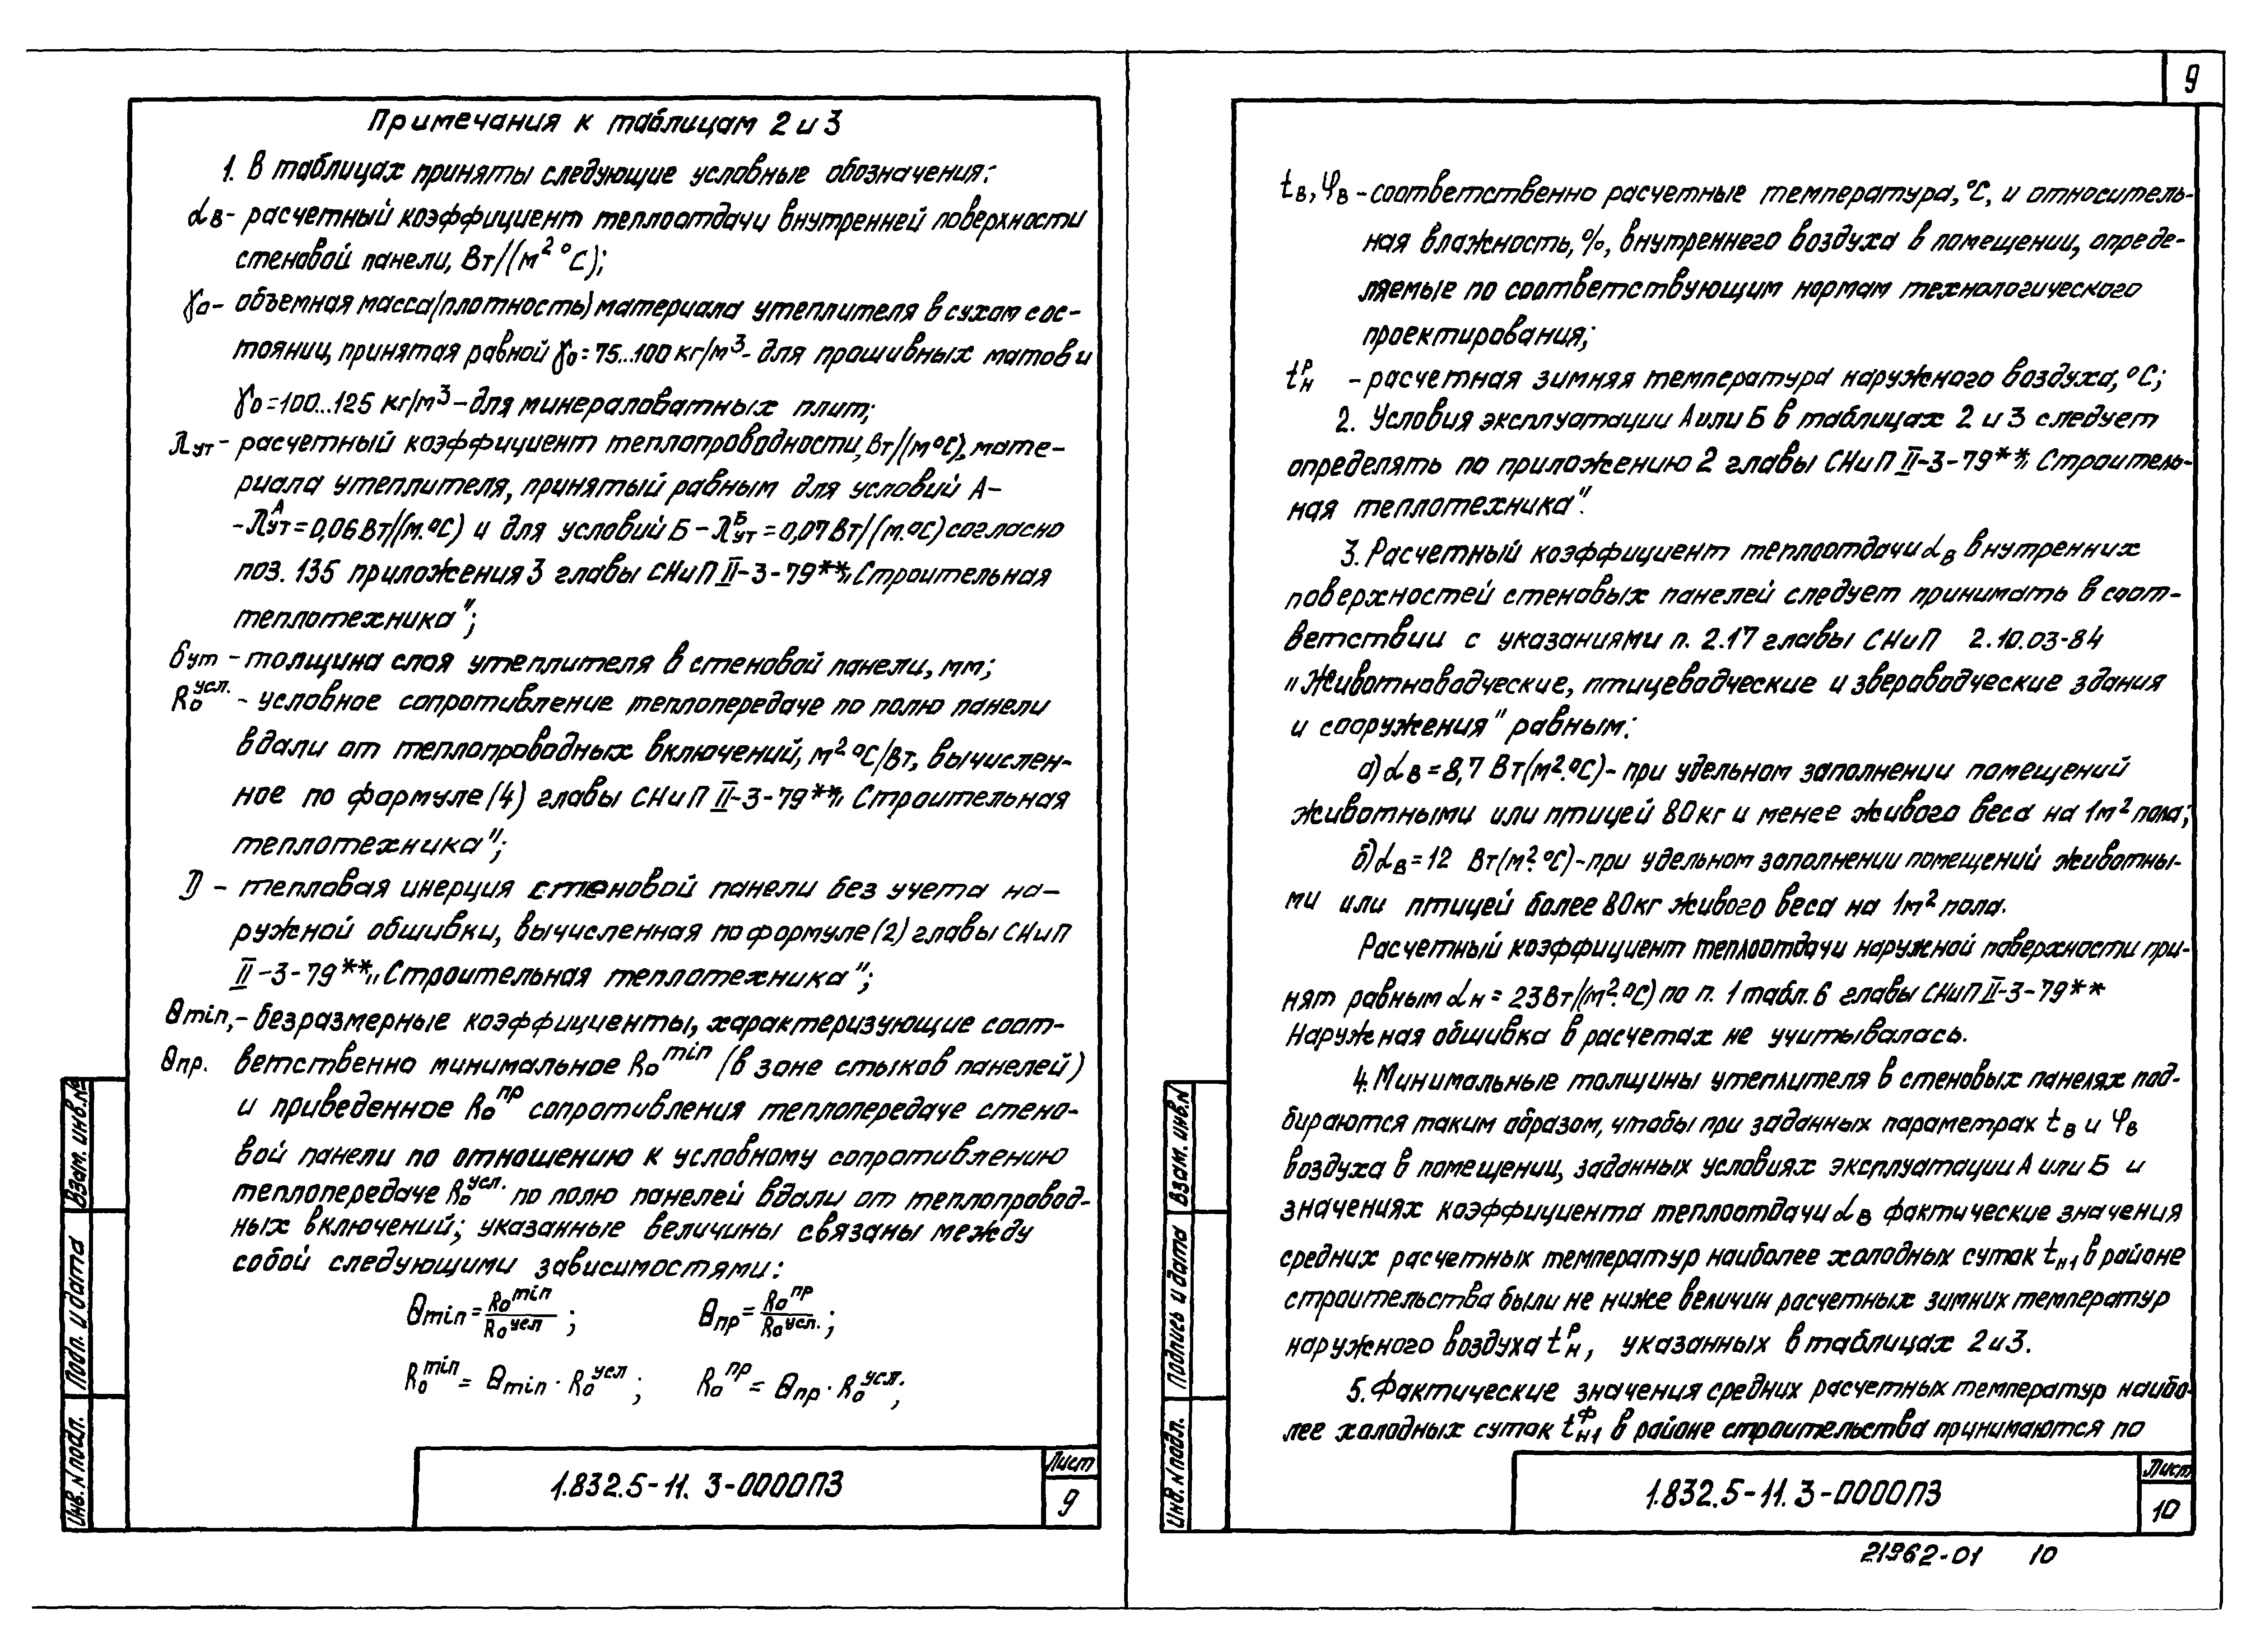 Примечания к таблицам 2 и 3
1. В таблицах приняты следующие условные обозначения:
αв - расчетный коэффициент теплоотдачи внутренней поверхности
стеновой панели, Вт/(м² °С);
γо - объемная масса (плотность) материала утеплителя в сухом сос-
тоянии, принятая равной γо = 75...100 кг/м³ - для прошивных матов и
γо = 100...125 кг/м³ - для минераловатных плит;
λут - расчетный коэффициент теплопроводности, Вт/(м °С), мате-
риала утеплителя, принятый равным для условий А-
- λут^А = 0,06 Вт/(м.°С) и для условий Б - λут^Б = 0,07 Вт/(м.°С) согласно
поз. 135 приложения 3 главы СНиП II-3-79** „Строительная
теплотехника";
δут - толщина слоя утеплителя в стеновой панели, мм;
Rо^усл. - условное сопротивление теплопередаче по полю панели
вдали от теплопроводных включений, м² °С/Вт, вычислен-
ное по формуле (4) главы СНиП II-3-79** „Строительная
теплотехника";
D - тепловая инерция стеновой панели без учета на-
ружной обшивки, вычисленная по формуле (2) главы СНиП
II-3-79** „Строительная теплотехника";
θmin, - безразмерные коэффициенты, характеризующие соот-
θпр. ветственно минимальное Rо^min (в зоне стыков панелей)
и приведенное Rо^пр сопротивления теплопередаче стено-
вой панели по отношению к условному сопротивлению
теплопередаче Rо^усл. по полю панелей вдали от теплопровод-
ных включений; указанные величины связаны между
собой следующими зависимостями:
θmin = Rо^min / Rо^усл ; θпр = Rо^пр / Rо^усл. ;
Rо^min = θmin · Rо^усл ; Rо^пр = θпр · Rо^усл. ;
Взам. инв.№
Подп. и дата
Инв. N подл.
1.832.5-11. 3-0000ПЗ
Лист
9
9
tв, φв - соответственно расчетные температура, °С, и относитель-
ная влажность, %, внутреннего воздуха в помещении, опреде-
ляемые по соответствующим нормам технологического
проектирования;
tн^р - расчетная зимняя температура наружного воздуха, °С;
2. Условия эксплуатации А или Б в таблицах 2 и 3 следует
определять по приложению 2 главы СНиП II-3-79** „Строитель-
ная теплотехника".
3. Расчетный коэффициент теплоотдачи αв внутренних
поверхностей стеновых панелей следует принимать в соот-
ветствии с указаниями п. 2.17 главы СНиП 2.10.03-84
„Животноводческие, птицеводческие и звероводческие здания
и сооружения" равным:
а) αв = 8,7 Вт(м².°С) - при удельном заполнении помещений
животными или птицей 80 кг и менее живого веса на 1м² пола;
б) αв = 12 Вт(м².°С) - при удельном заполнении помещений животны-
ми или птицей более 80 кг живого веса на 1м² пола.
Расчетный коэффициент теплоотдачи наружной поверхности при-
нят равным αн = 23 Вт/(м².°С) по п. 1 табл. 6 главы СНиП II-3-79**
Наружная обшивка в расчетах не учитывалась.
4. Минимальные толщины утеплителя в стеновых панелях под-
бираются таким образом, чтобы при заданных параметрах tв и φв
воздуха в помещении, заданных условиях эксплуатации А или Б и
значениях коэффициента теплоотдачи αв фактические значения
средних расчетных температур наиболее холодных суток tн1 в районе
строительства были не ниже величин расчетных зимних температур
наружного воздуха tн^р, указанных в таблицах 2 и 3.
5. Фактические значения средних расчетных температур наибо-
лее холодных суток tн1^ф в районе строительства принимаются по
Взам. инв.N
Подпись и дата
Инв. N подл.
1.832.5-11. 3-0000ПЗ
Лист
10
21962-01 10